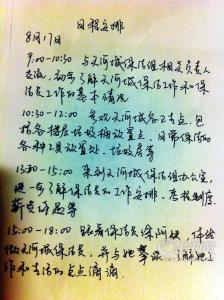 日程安排
8月17日
9:00-10:30 与天河城保洁组相关负责人
交流,初步了解天河城保洁工作和保
洁员工作的基本情况
10:30-12:00 参观天河城各工点,包
括各楼层垃圾桶放置点、日常保洁的
各种工具放置处、垃圾房等
13:30-15:00 来到天河城保洁组办公室,
进一步了解保洁员的工作安排、考核制度、
薪资待遇等
15:00-18:00 跟着保洁员保阿姨,体验
做天河城保洁员,并与她 了解她工
作和生活的点点滴滴